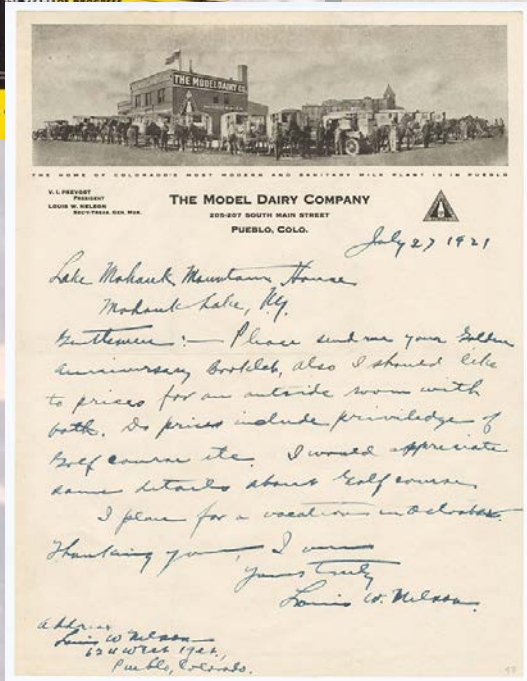 THE MODEL DAIRY CO.
THE HOME OF COLORADO'S MOST MODERN AND SANITARY MILK PLANT IS IN PUEBLO
V. I. PREVOST
PRESIDENT
LOUIS W. NELSON
SEC'Y-TREAS. GEN. MGR.
THE MODEL DAIRY COMPANY
205-207 SOUTH MAIN STREET
PUEBLO, COLO.
July 27 1921
Lake Mohawk Mountain House
Mohawk Lake, Ny.
Gentlemen:— Please send me your Golden
Anniversary Booklet, also I should like
to prices for an outside room with
bath. Do prices include priviledge of
Golf course etc. I would appriciate
some details about Golf course
I plan for a vacation in October.
Thanking you, I am
yours truly
Louis W. Nelson.
Address
Louis W Nelson
West 19th,
Pueblo, Colorado.